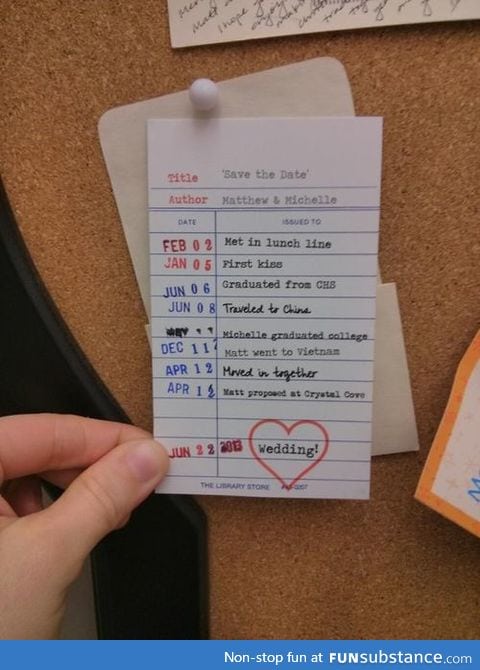 Title 'Save the Date'
Author Matthew & Michelle
DATE ISSUED TO
FEB 02 Met in lunch line
JAN 05 First kiss
JUN 06 Graduated from CHS
JUN 08 Traveled to China
Michelle graduated college
DEC 11 Matt went to Vietnam
APR 12 Moved in together
APR 12 Matt proposed at Crystal Cove
JUN 22 2013 Wedding!
THE LIBRARY STORE
Non-stop fun at FUNsubstance.com